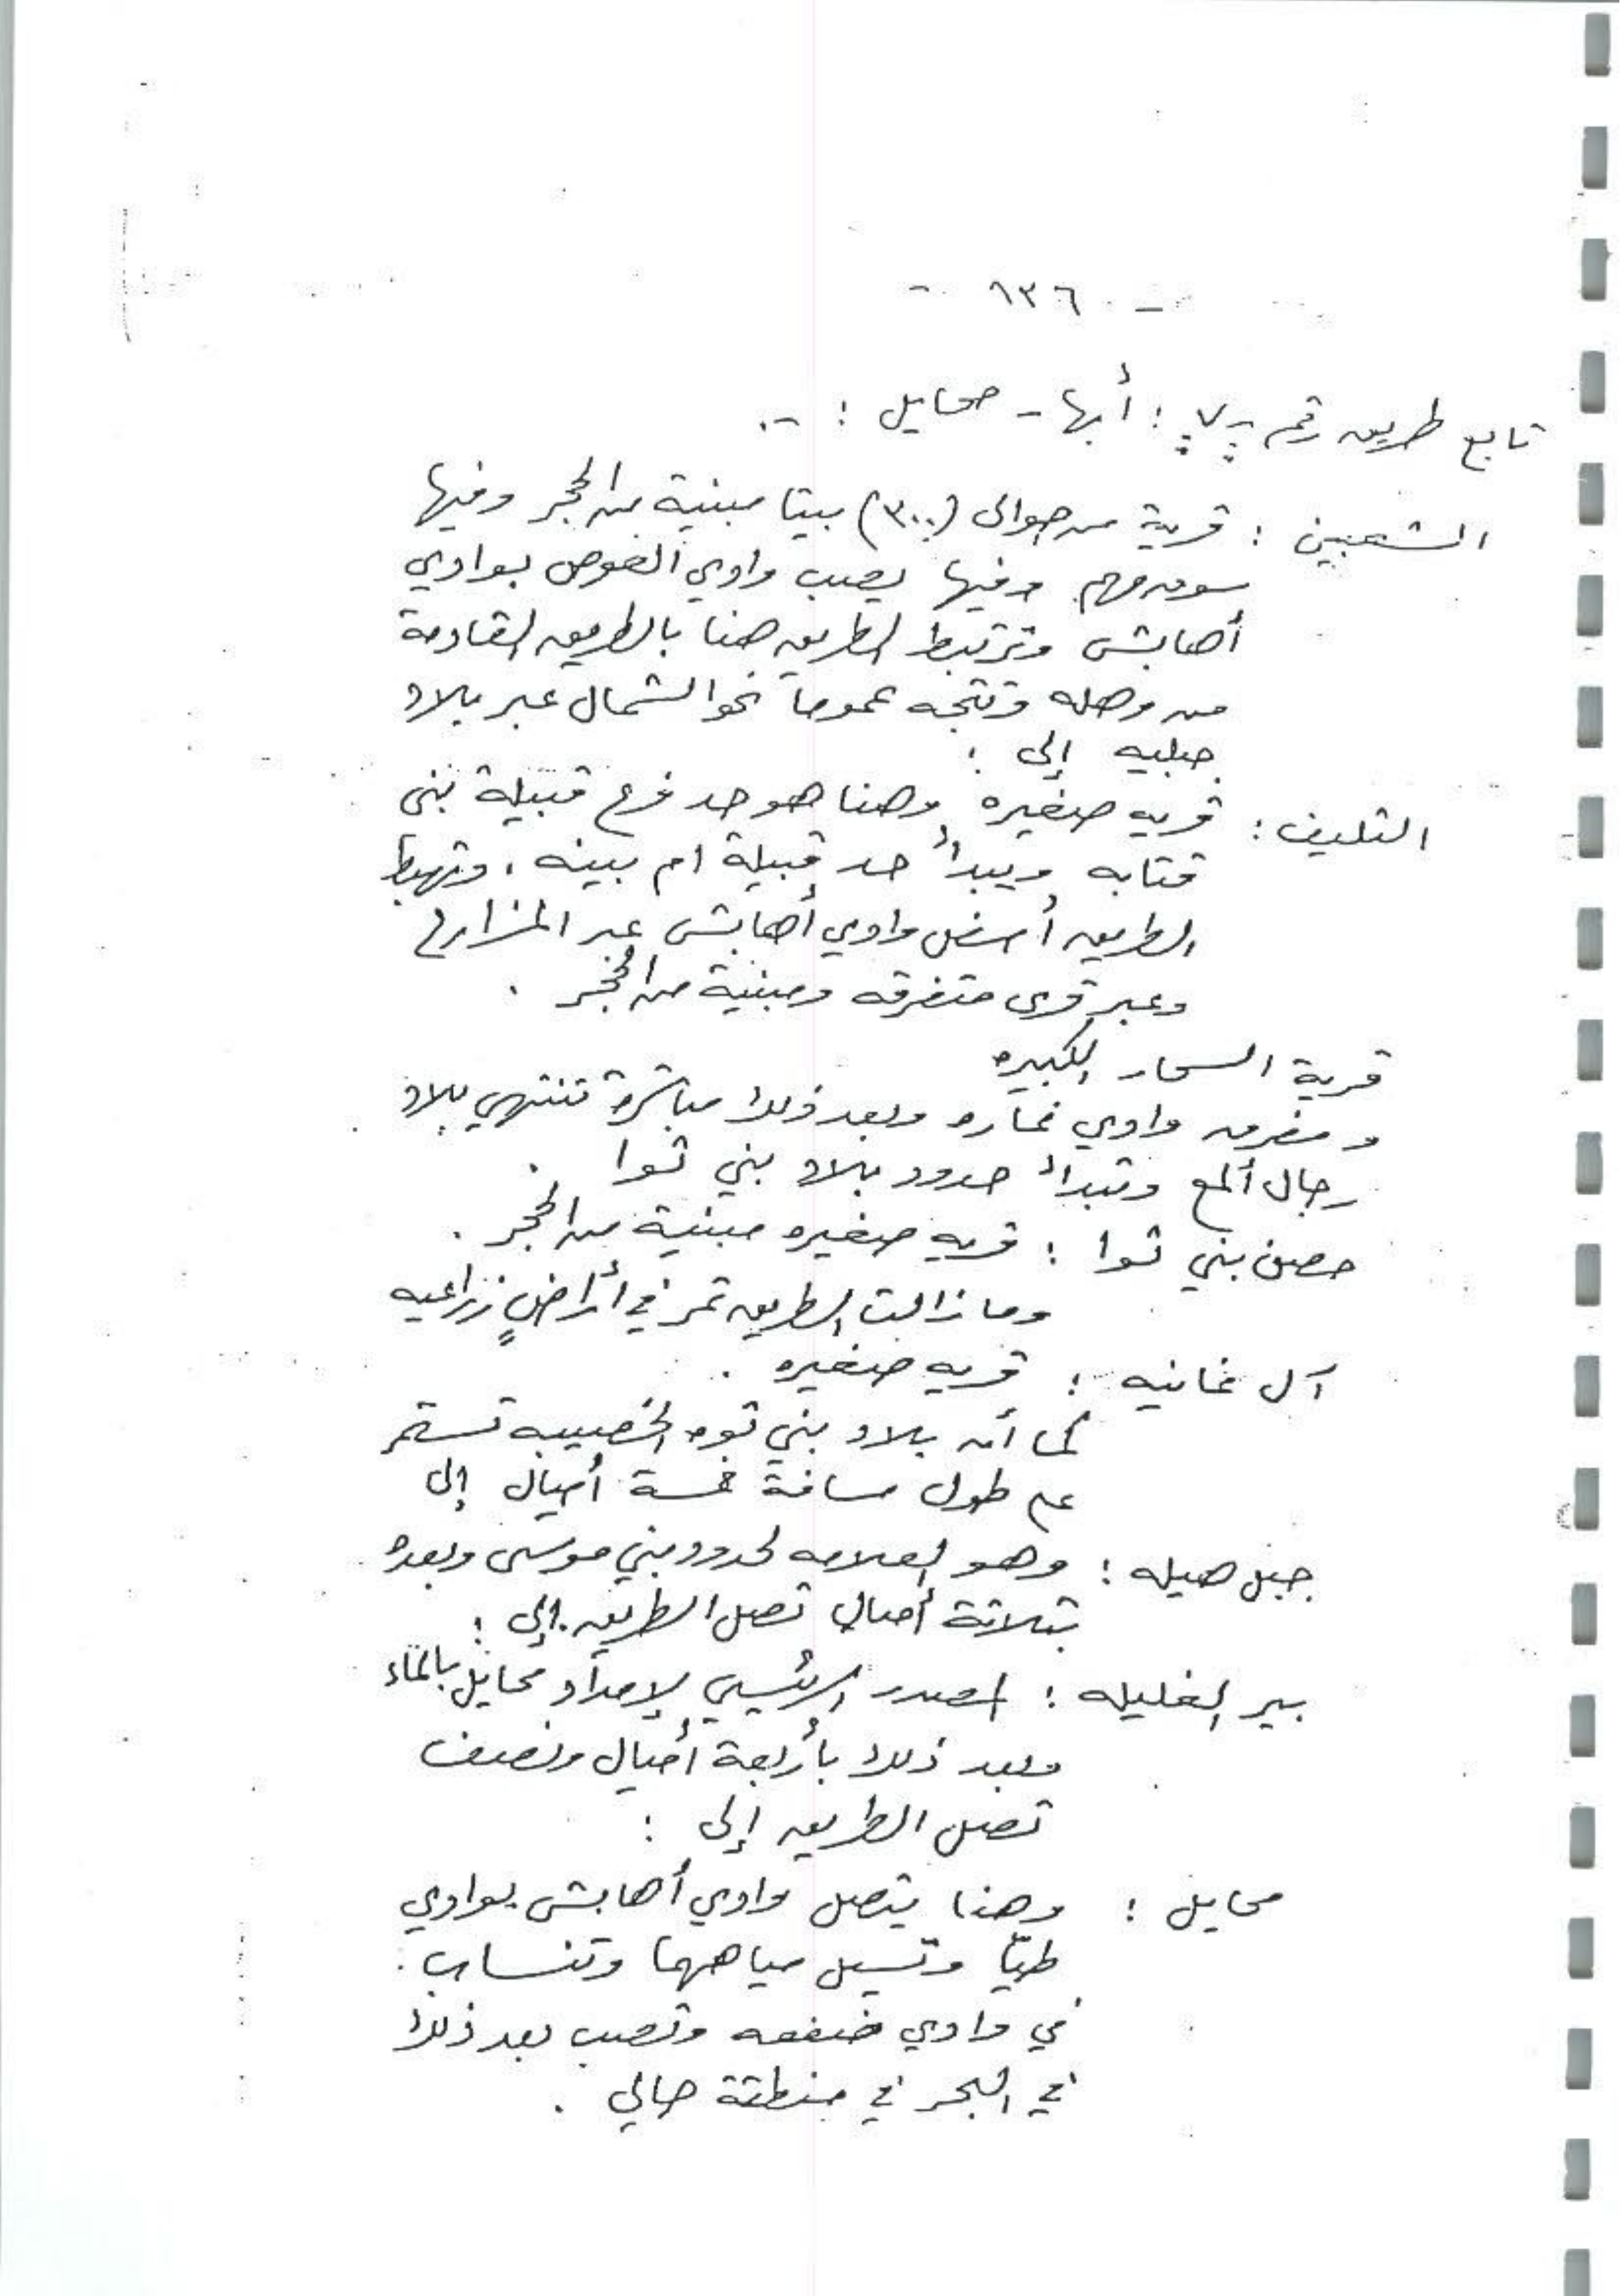 - ١٣٦ -
تابع طريق رقم -٧- : أبها - محايل : -
الشعبين : قرية من حوالى (٣٠٠) بيتا مبنية من الحجر وفيها
سوق مهم وفيها يصب وادي العوص بوادي
أحابش وترتبط الطريق هنا بالطريق القادمة
من وصله وتتجه عموماً نحو الشمال عبر بلاد
جبليه إلى :
التليف : قريه صغيره وهنا هو حد فرع قبيلة بنى
قتابه ويبدأ حد قبيلة ام بينه ، وتهبط
الطريق أسفل وادي أحابش عبر المزارع
وعبر قرى متفرقه ومبنية من الحجر .
قرية السحار الكبيره
ومفرق وادي غماره وبعد ذلك مباشرة تنتهي بلاد
رجال ألمع وتبدأ حدود بلاد بني ثوا .
حصن بني ثوا : قريه صغيره مبنية من الحجر .
وما زالت الطريق تمر في أراضٍ زراعيه
آل غانيه : قريه صغيره .
كما أن بلاد بني ثوه الخصيبه تستمر
على طول مسافة خمسة أميال إلى
جبل صيله : وهو العلامه لحدود بني موسى وبعده
بثلاثة أميال تصل الطريق إلى :
بير الغليله : المصدر الرئيسي لإمداد محايل بالماء
وبعد ذلك بأربعة أميال ونصف
تصل الطريق إلى :
محايل : وهنا يتصل وادي أحابش بوادي
طيّا وتسيل مياههما وتنساب
في وادي ضفعه وتصب بعد ذلك
في البحر في منطقة حالي .